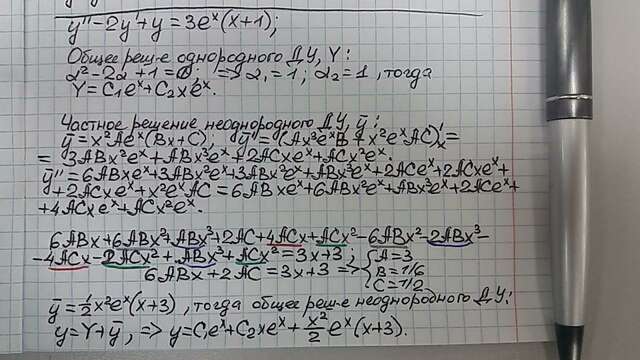 y''-2y'+y=3eˣ(x+1);
Общее реш-е однородного ДУ, Y:
α²-2α+1=0; => α₁=1; α₂=1, тогда
Y=C₁eˣ+C₂xeˣ.
Частное решение неоднородного ДУ, ȳ:
ȳ=x²Aeˣ(Bx+C), ȳ'=(Ax³eˣB+x²eˣAC)'ₓ=
=3ABx²eˣ+ABx³eˣ+2ACxeˣ+ACx²eˣ.
ȳ''=6ABxeˣ+3ABx²eˣ+3ABx²eˣ+ABx³eˣ+2ACeˣ+2ACxeˣ+
+2ACxeˣ+x²eˣAC=6ABxeˣ+6ABx²eˣ+ABx³eˣ+2ACeˣ+
+4ACxeˣ+ACx²eˣ.
6ABx+6ABx²+ABx³+2AC+4ACx+ACx²-6ABx²-2ABx³-
-4ACx-2ACx²+ABx³+ACx²=3x+3; {A=3
6ABx+2AC=3x+3 => B=1/6
C=1/2
ȳ=1/2x²eˣ(x+3), тогда общее реш-е неоднородного ДУ:
y=Y+ȳ, => y=C₁eˣ+C₂xeˣ+x²/2eˣ(x+3).